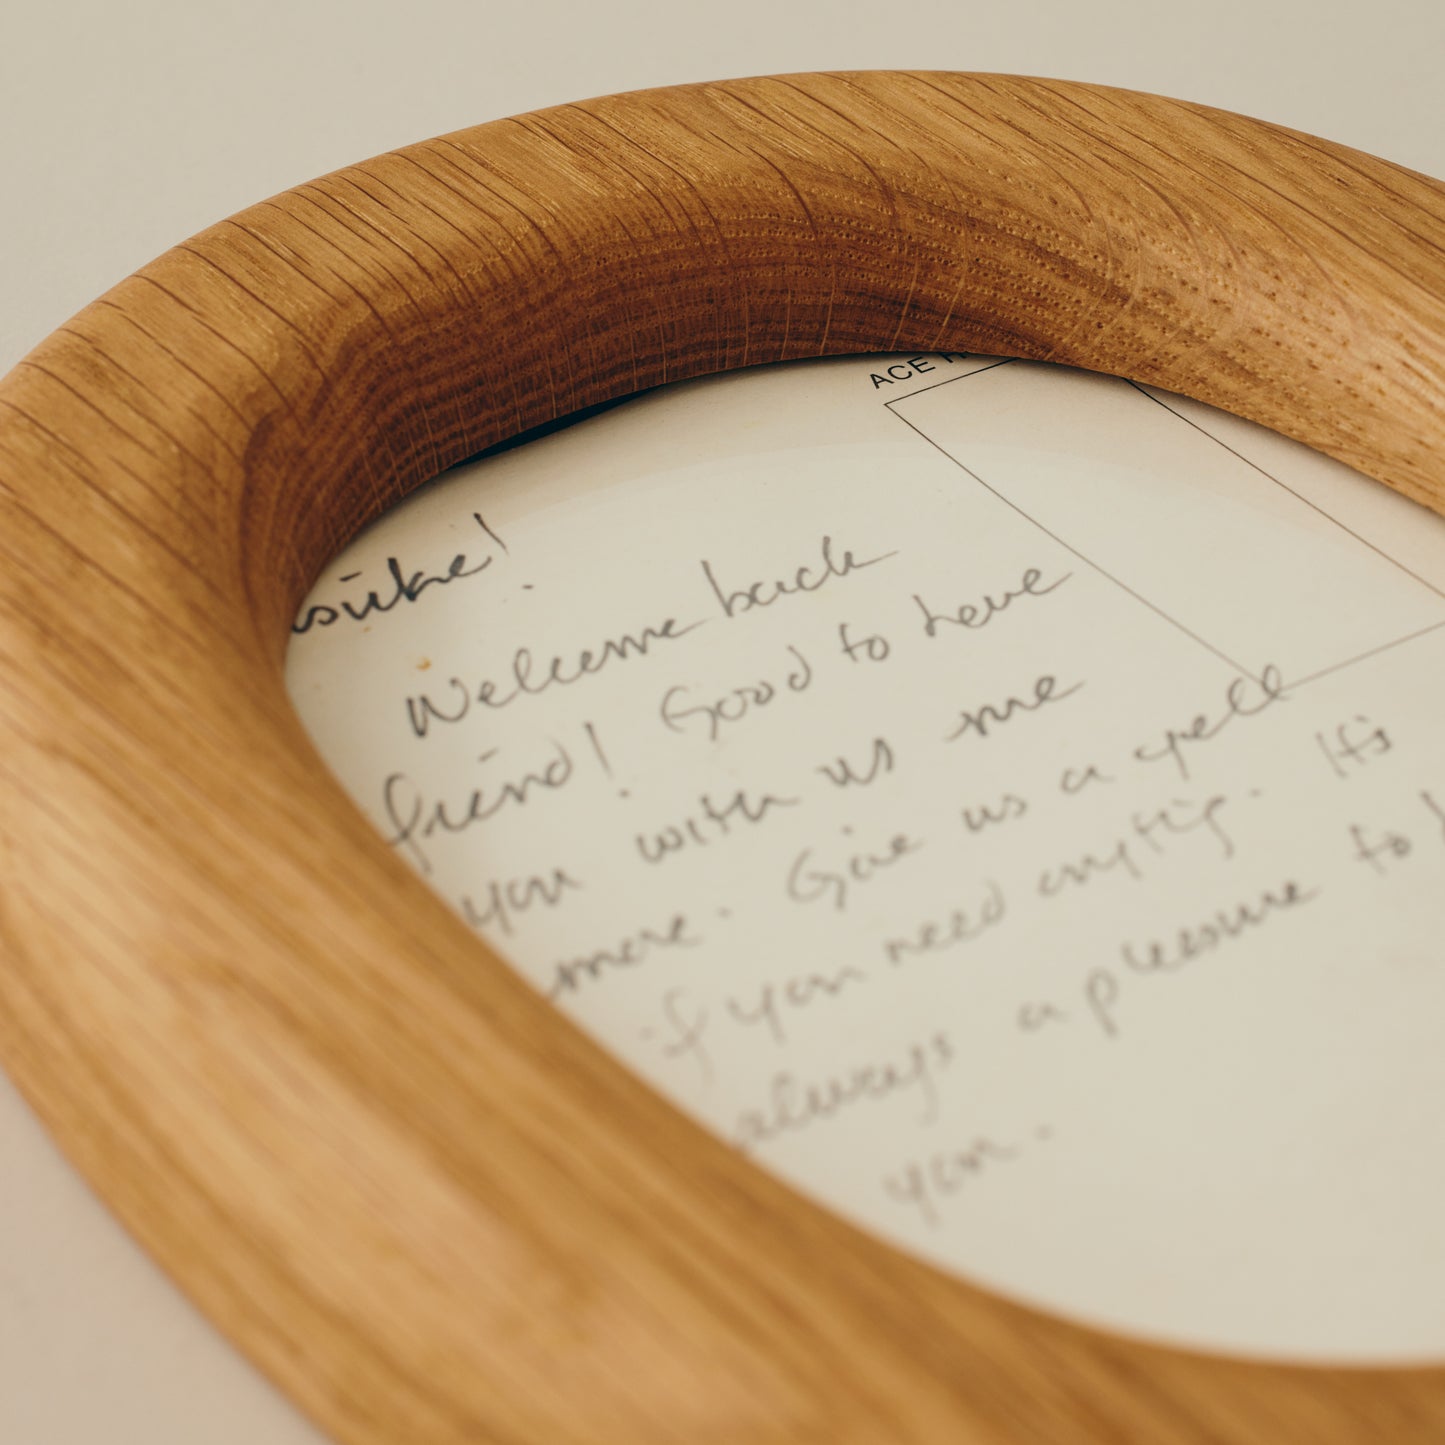 ACE H
suke!
Welcome back
friend! Good to have
you with us me
more. Give us a yell
if you need anytig. It's
always a pleasure to
you.